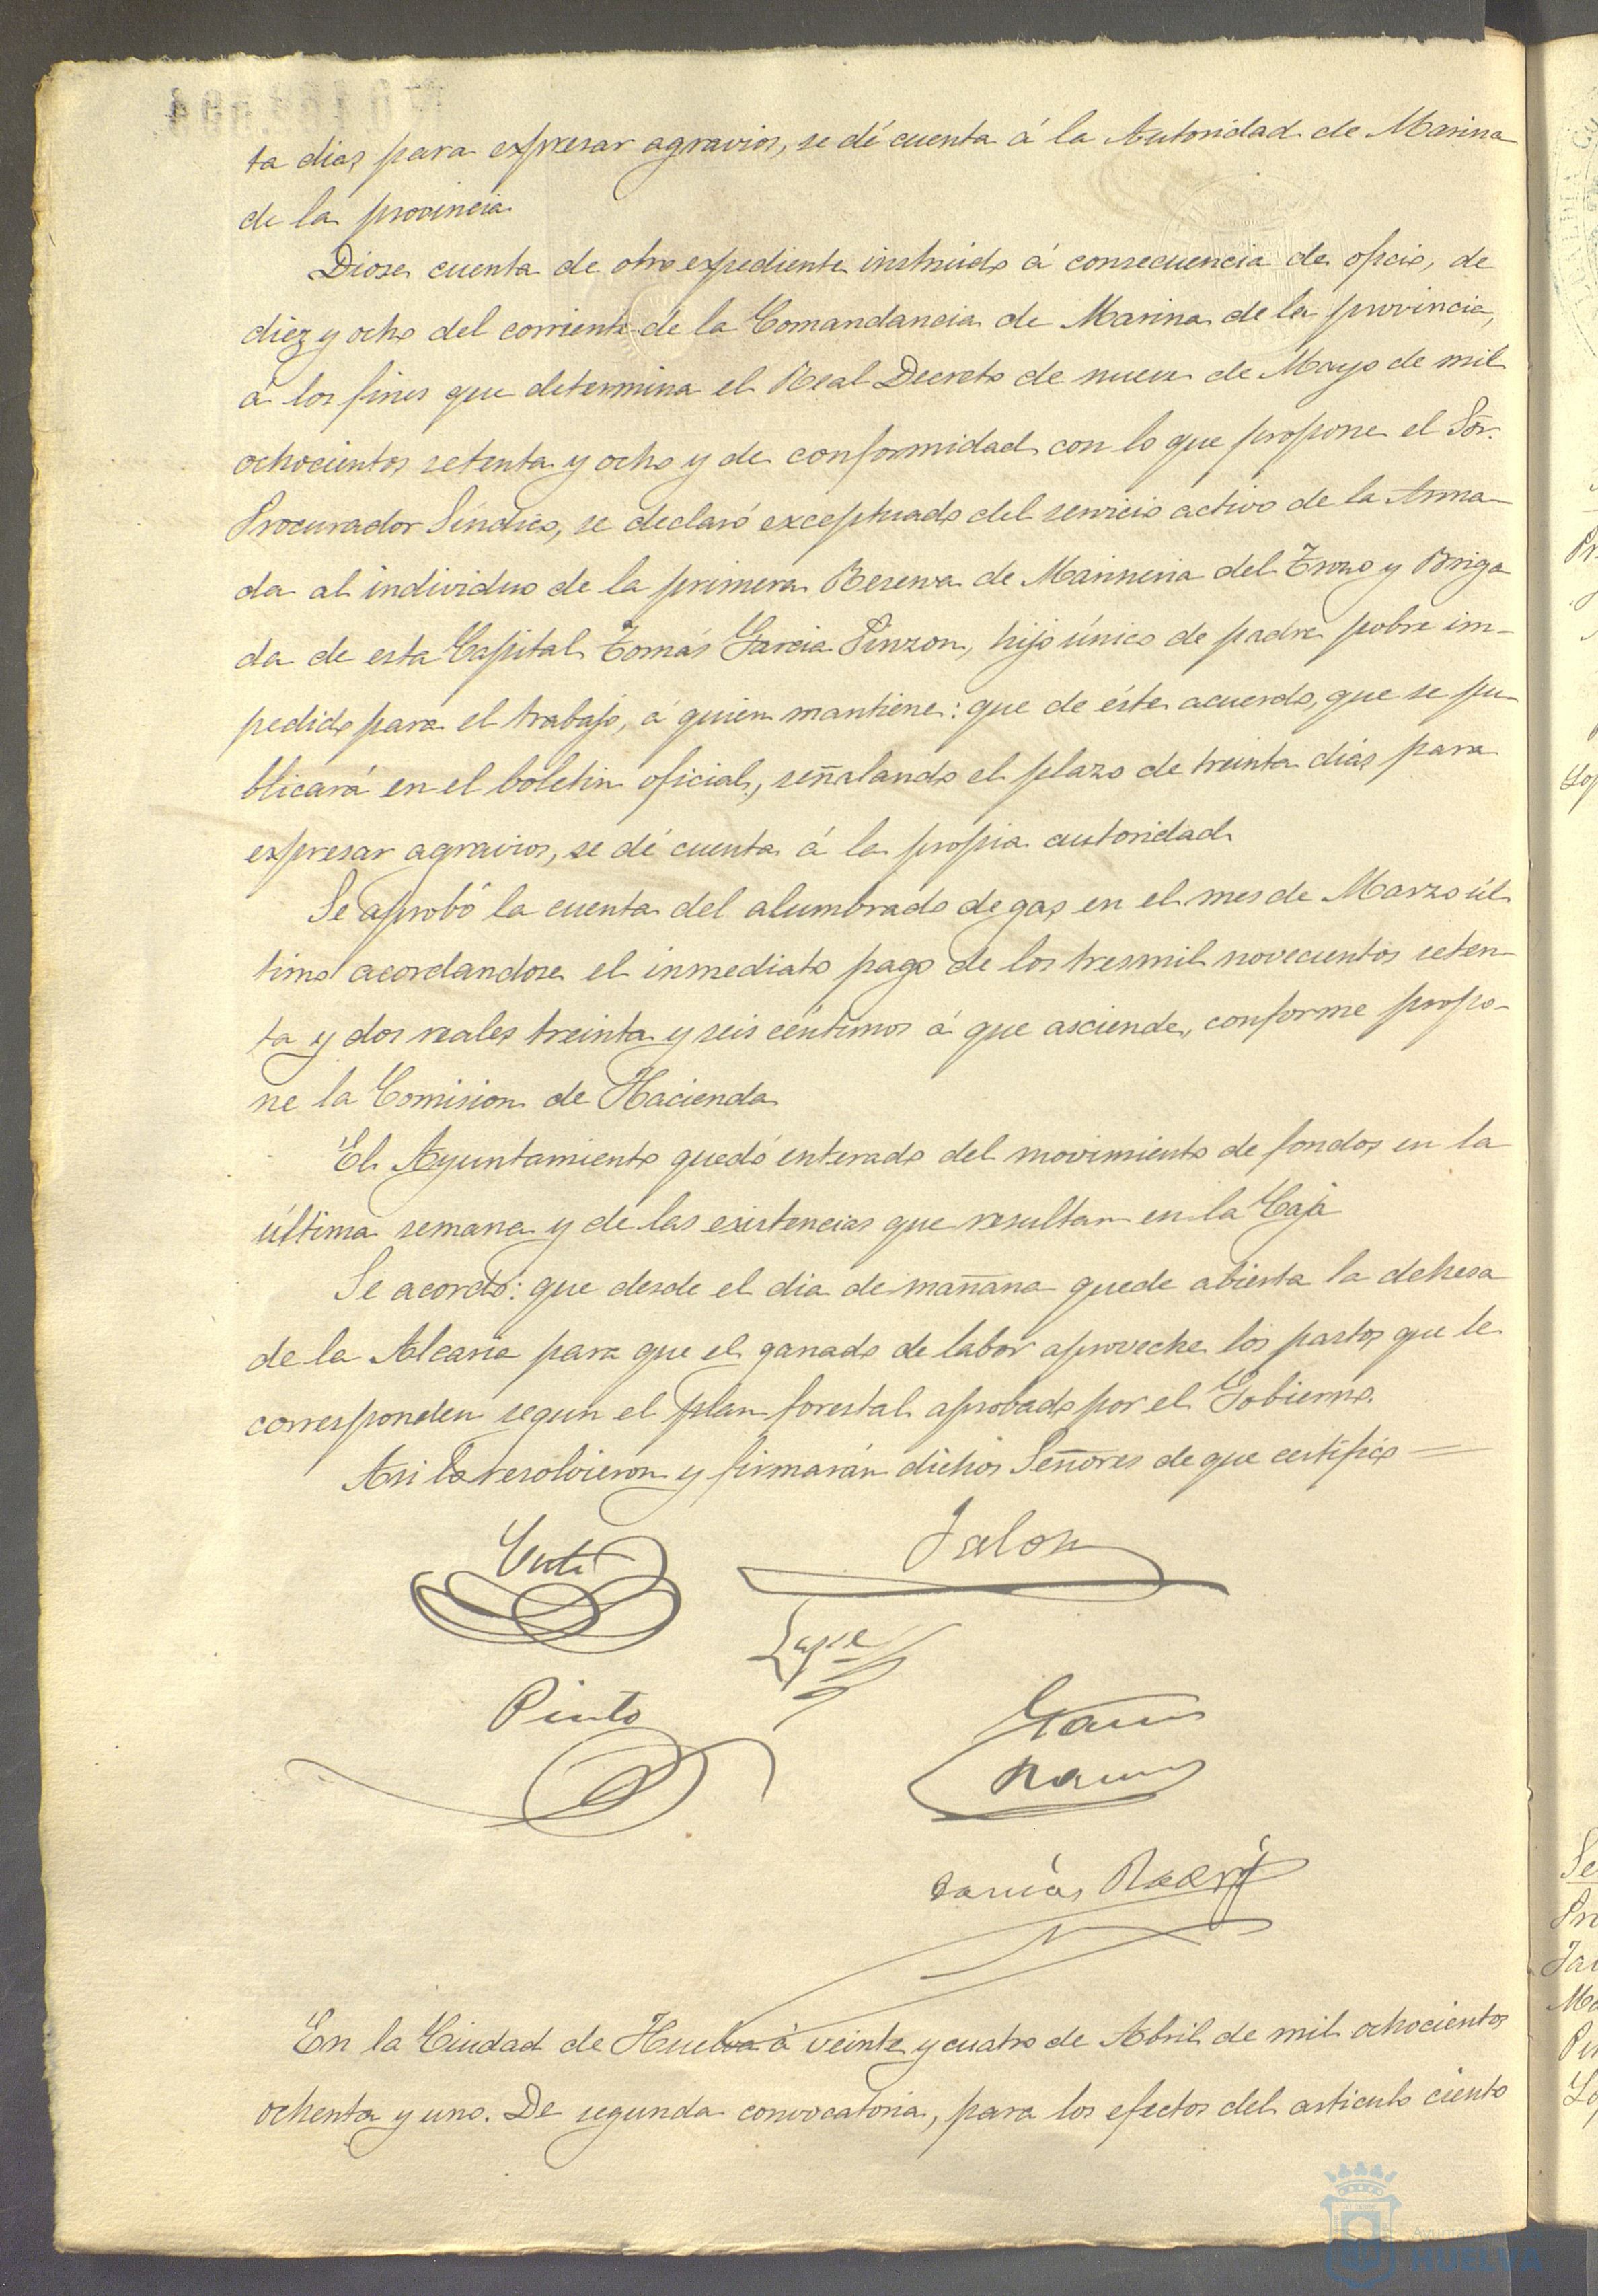 ta dias para expresar agravios, se dé cuenta á la Autoridad de Marina
de la provincia
Diose cuenta de otro expediente instruido á consecuencia de oficio, de
diez y ocho del corriente de la Comandancia de Marina de la provincia,
á los fines que determina el Real Decreto de nueve de Mayo de mil
ochocientos setenta y ocho y de conformidad con lo que propone el Sõr.
Procurador Síndico, se declaró exceptuado del servicio activo de la Arma-
da al individuo de la primera Reserva de Marineria del Trozo y Briga
da de esta Capital Tomás Garcia Pinzon, hijo único de padre pobre im-
pedido para el trabajo, á quien mantiene: que de éste acuerdo, que se pu-
blicará en el boletin oficial, señalando el plazo de treinta dias para
expresar agravios, se dé cuenta á la propia autoridad
Se aprobó la cuenta del alumbrado de gas en el mes de Marzo úl
timo acordandose el inmediato pago de los tresmil novecientos seten-
ta y dos reales treinta y seis céntimos á que asciende, conforme propo-
ne la Comision de Hacienda
El Ayuntamiento quedó enterado del movimiento de fondos en la
última semana y de las existencias que resultan en la Caja
Se acordó: que desde el dia de mañana quede abierta la dehesa
de la Alcaria para que el ganado de labor aproveche los pastos que le
corresponden segun el plan forestal aprobado por el Gobierno.
Asi lo resolvieron y firmarán dichos Señores de que certifico =
Jalon
Pinto
Garcia
Ramos
En la Ciudad de Huelva á veinte y cuatro de Abril de mil ochocientos
ochenta y uno. De segunda convocatoria, para los efectos del articulo ciento
HUELVA